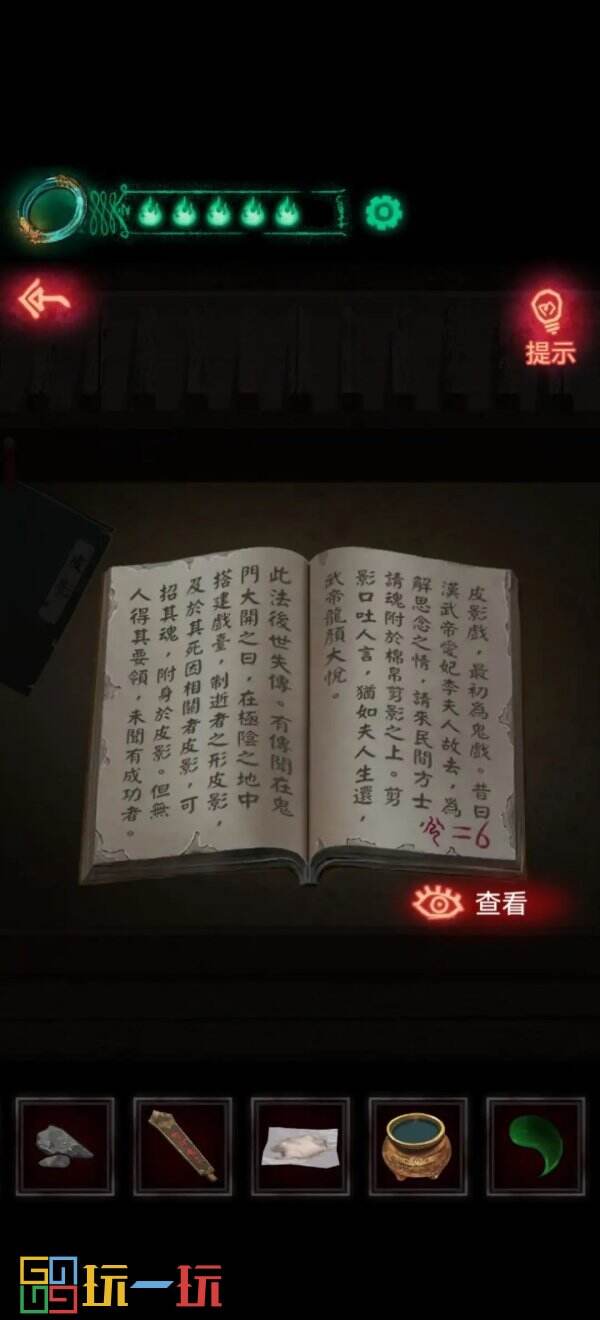 提示
皮影戲，最初為鬼戲。昔日
漢武帝愛妃李夫人故去，為
解思念之情，請來民間方士，
請魂附於棉帛剪影之上。剪
影口吐人言，猶如夫人生還，
武帝龍顏大悅。
此法後世失傳。有傳聞在鬼
門大開之日，在極陰之地中
搭建戲臺，制逝者之形皮影，
及於其死因相關者皮影，可
招其魂，附身於皮影。但無
人得其要領，未聞有成功者。
=6
查看
玩一玩